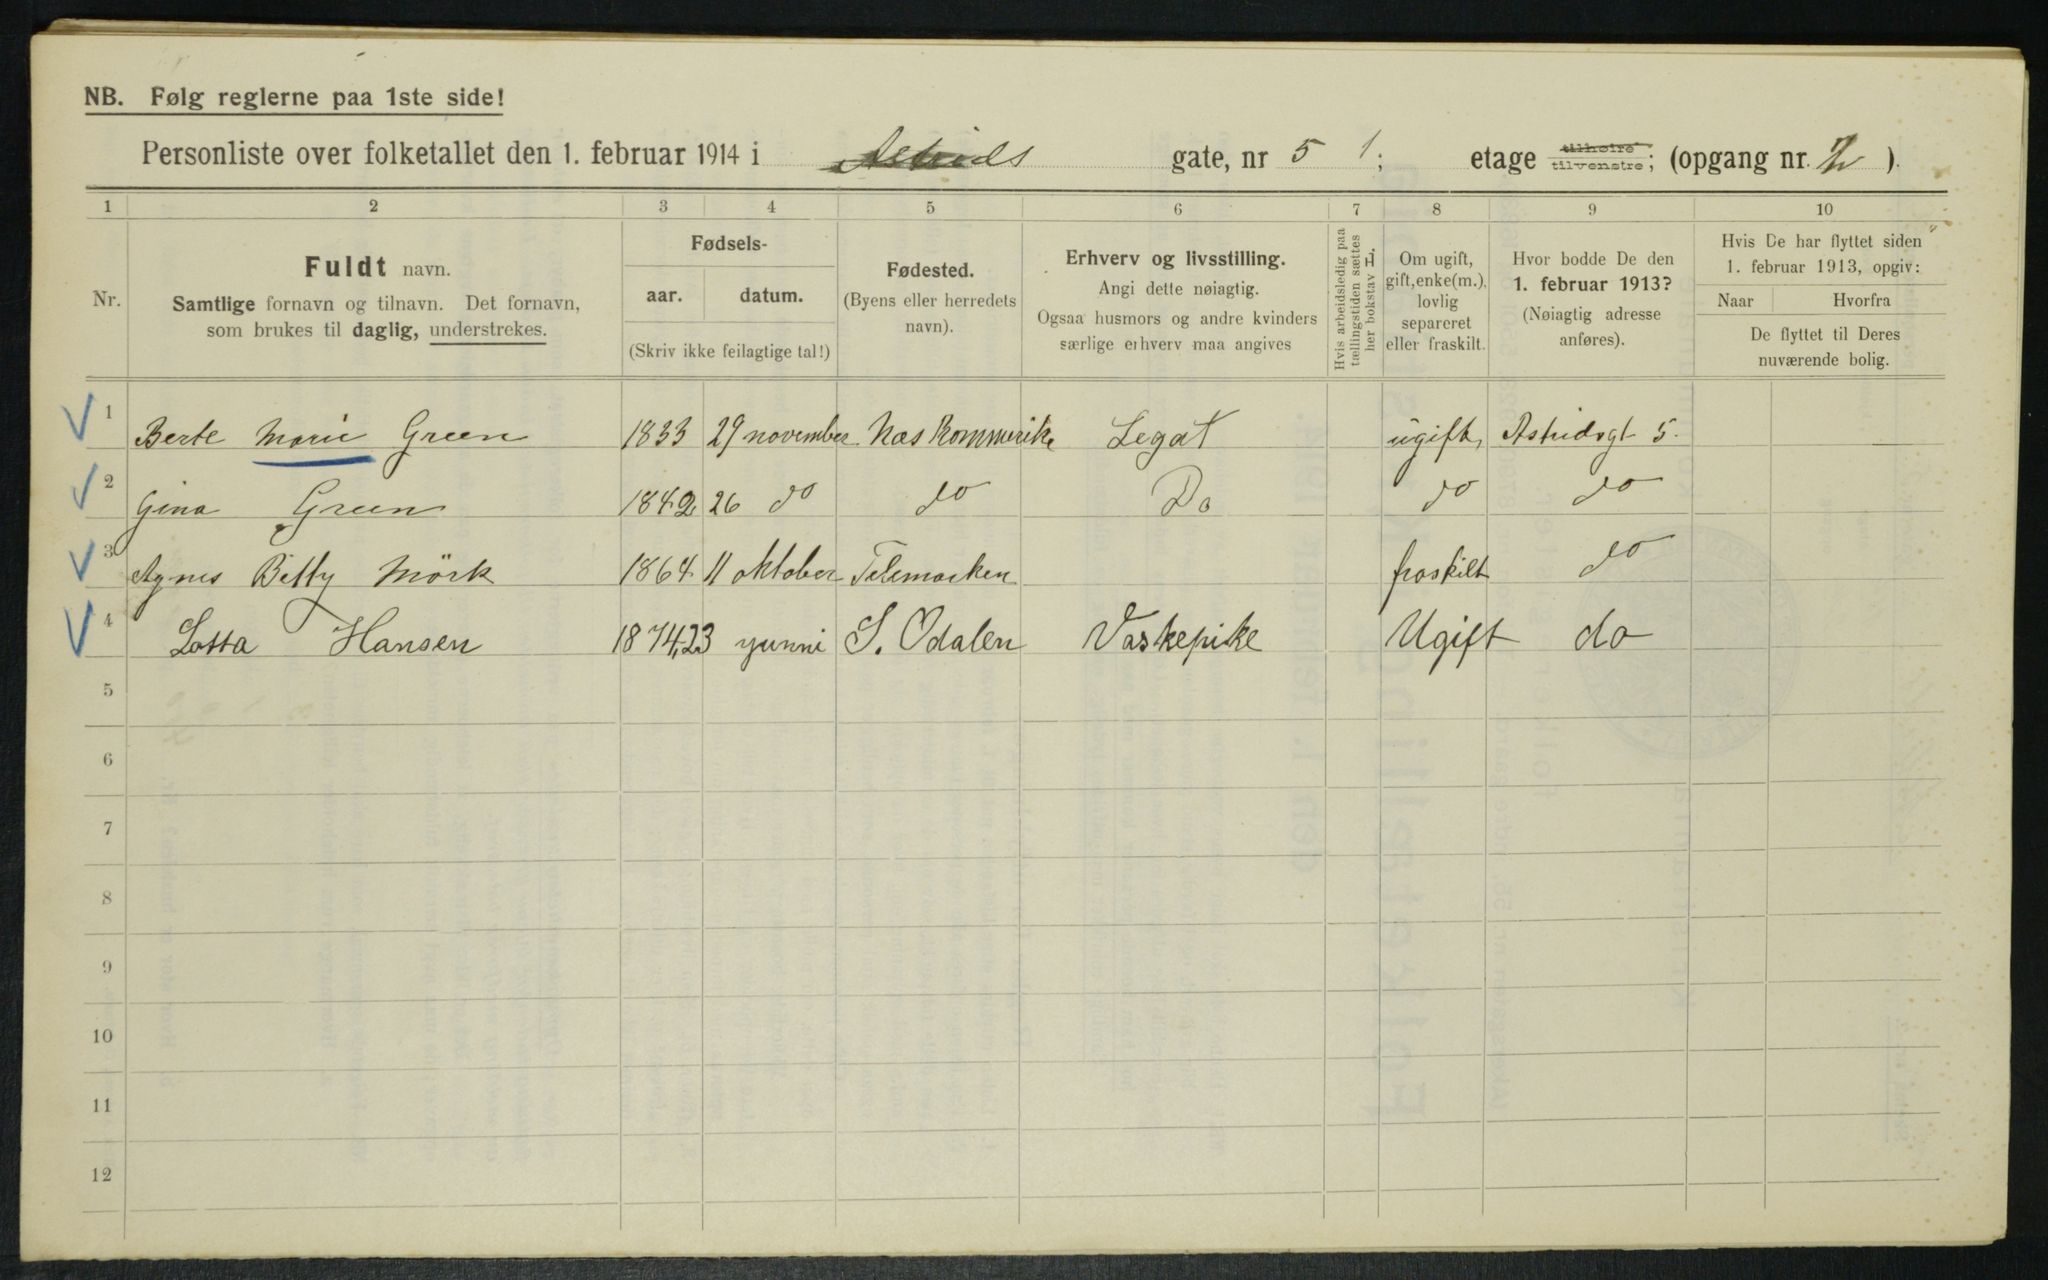 NB. Følg reglerne paa 1ste side!
Personliste over folketallet den 1. februar 1914 i Astrids gate, nr 5 1; etage tilhøire tilvenstre; (opgang nr. 2).
1 2 3 4 5 6 7 8 9 10
Nr.
Fuldt navn.
Samtlige fornavn og tilnavn. Det fornavn,
som brukes til daglig, understrekes.
Fødsels-
aar. datum.
(Skriv ikke feilagtige tal!)
Fødested.
(Byens eller herredets
navn).
Erhverv og livsstilling.
Angi dette nøiagtig.
Ogsaa husmors og andre kvinders
særlige erhverv maa angives
Hvis arbeidsledig paa
tællingstiden sættes
her bokstav L.
Om ugift,
gift, enke(m.),
lovlig
separeret
eller fraskilt.
Hvor bodde De den
1. februar 1913?
(Nøiagtig adresse
anføres).
Hvis De har flyttet siden
1. februar 1913, opgiv:
Naar Hvorfra
De flyttet til Deres
nuværende bolig.
1 Berte Marie Green 1833 29 november Nes Rommerike Legat ugift Astridsgt 5.
2 Gina Green 1842 26 do do Do do do
3 Agnes Betty Mörk 1864 11 oktober Telemarken fraskilt do
4 Lotta Hansen 1874, 23 yunni S. Odalen Vaskepike Ugift do
5
6
7
8
9
10
11
12